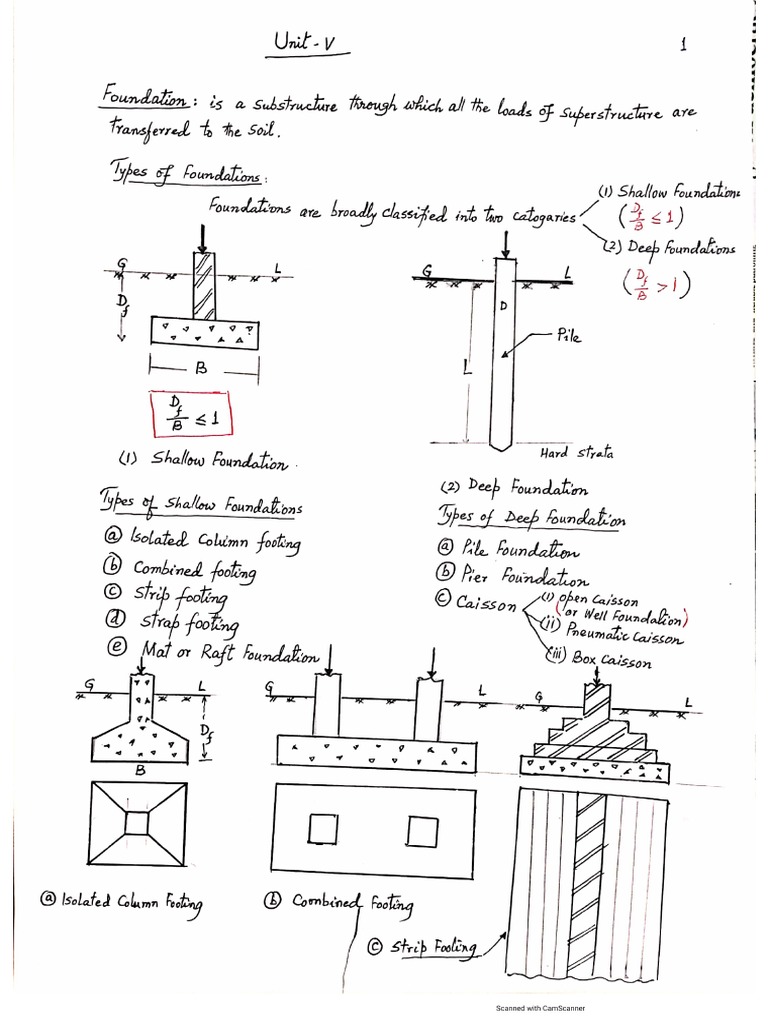 Unit-V
1
Foundation: is a substructure through which all the loads of superstructure are
transferred to the soil.
Types of Foundations:
Foundations are broadly classified into two catogaries
(1) Shallow Foundations
(Df/B ≤ 1)
(2) Deep Foundations
(Df/B > 1)
G L
Df
B
Df/B ≤ 1
(1) Shallow Foundation.
G L
D
Pile
L
Hard strata
(2) Deep Foundation
Types of Shallow Foundations
(a) Isolated Column footing
(b) Combined footing
(c) Strip footing
(d) Strap footing
(e) Mat or Raft Foundation
Types of Deep Foundation
(a) Pile Foundation
(b) Pier Foundation
(c) Caisson
(i) open Caisson
(or Well Foundation)
(ii) Pneumatic Caisson
(iii) Box Caisson
G L
Df
B
G L
G L
(a) Isolated Column Footing
(b) Combined Footing
(c) Strip Footing
Scanned with CamScanner